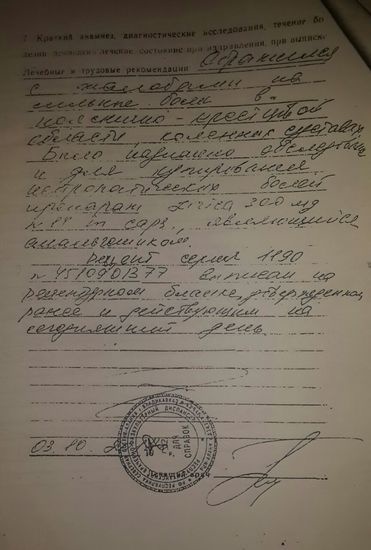 7. Краткий анамнез, диагностические исследования, течение бо
лезни, проведено лечение, состояние при направлении, при выписке
Лечебные и трудовые рекомендации Обратился
с жалобами на
сильные боли в
пояснично-крестцовой
области, коленных суставах.
Было назначено обследование
и для купирования
нейропатических болей
препарат Lirica 300 мд
caps, являющийся
анальгетиком.
Рецепт серии 1190
№ 4510901377 выписан на
рецептурном бланке, утвержденном
ранее и действующим на
сегодняшний день
03. 10.
ДЛЯ
СПРАВОК